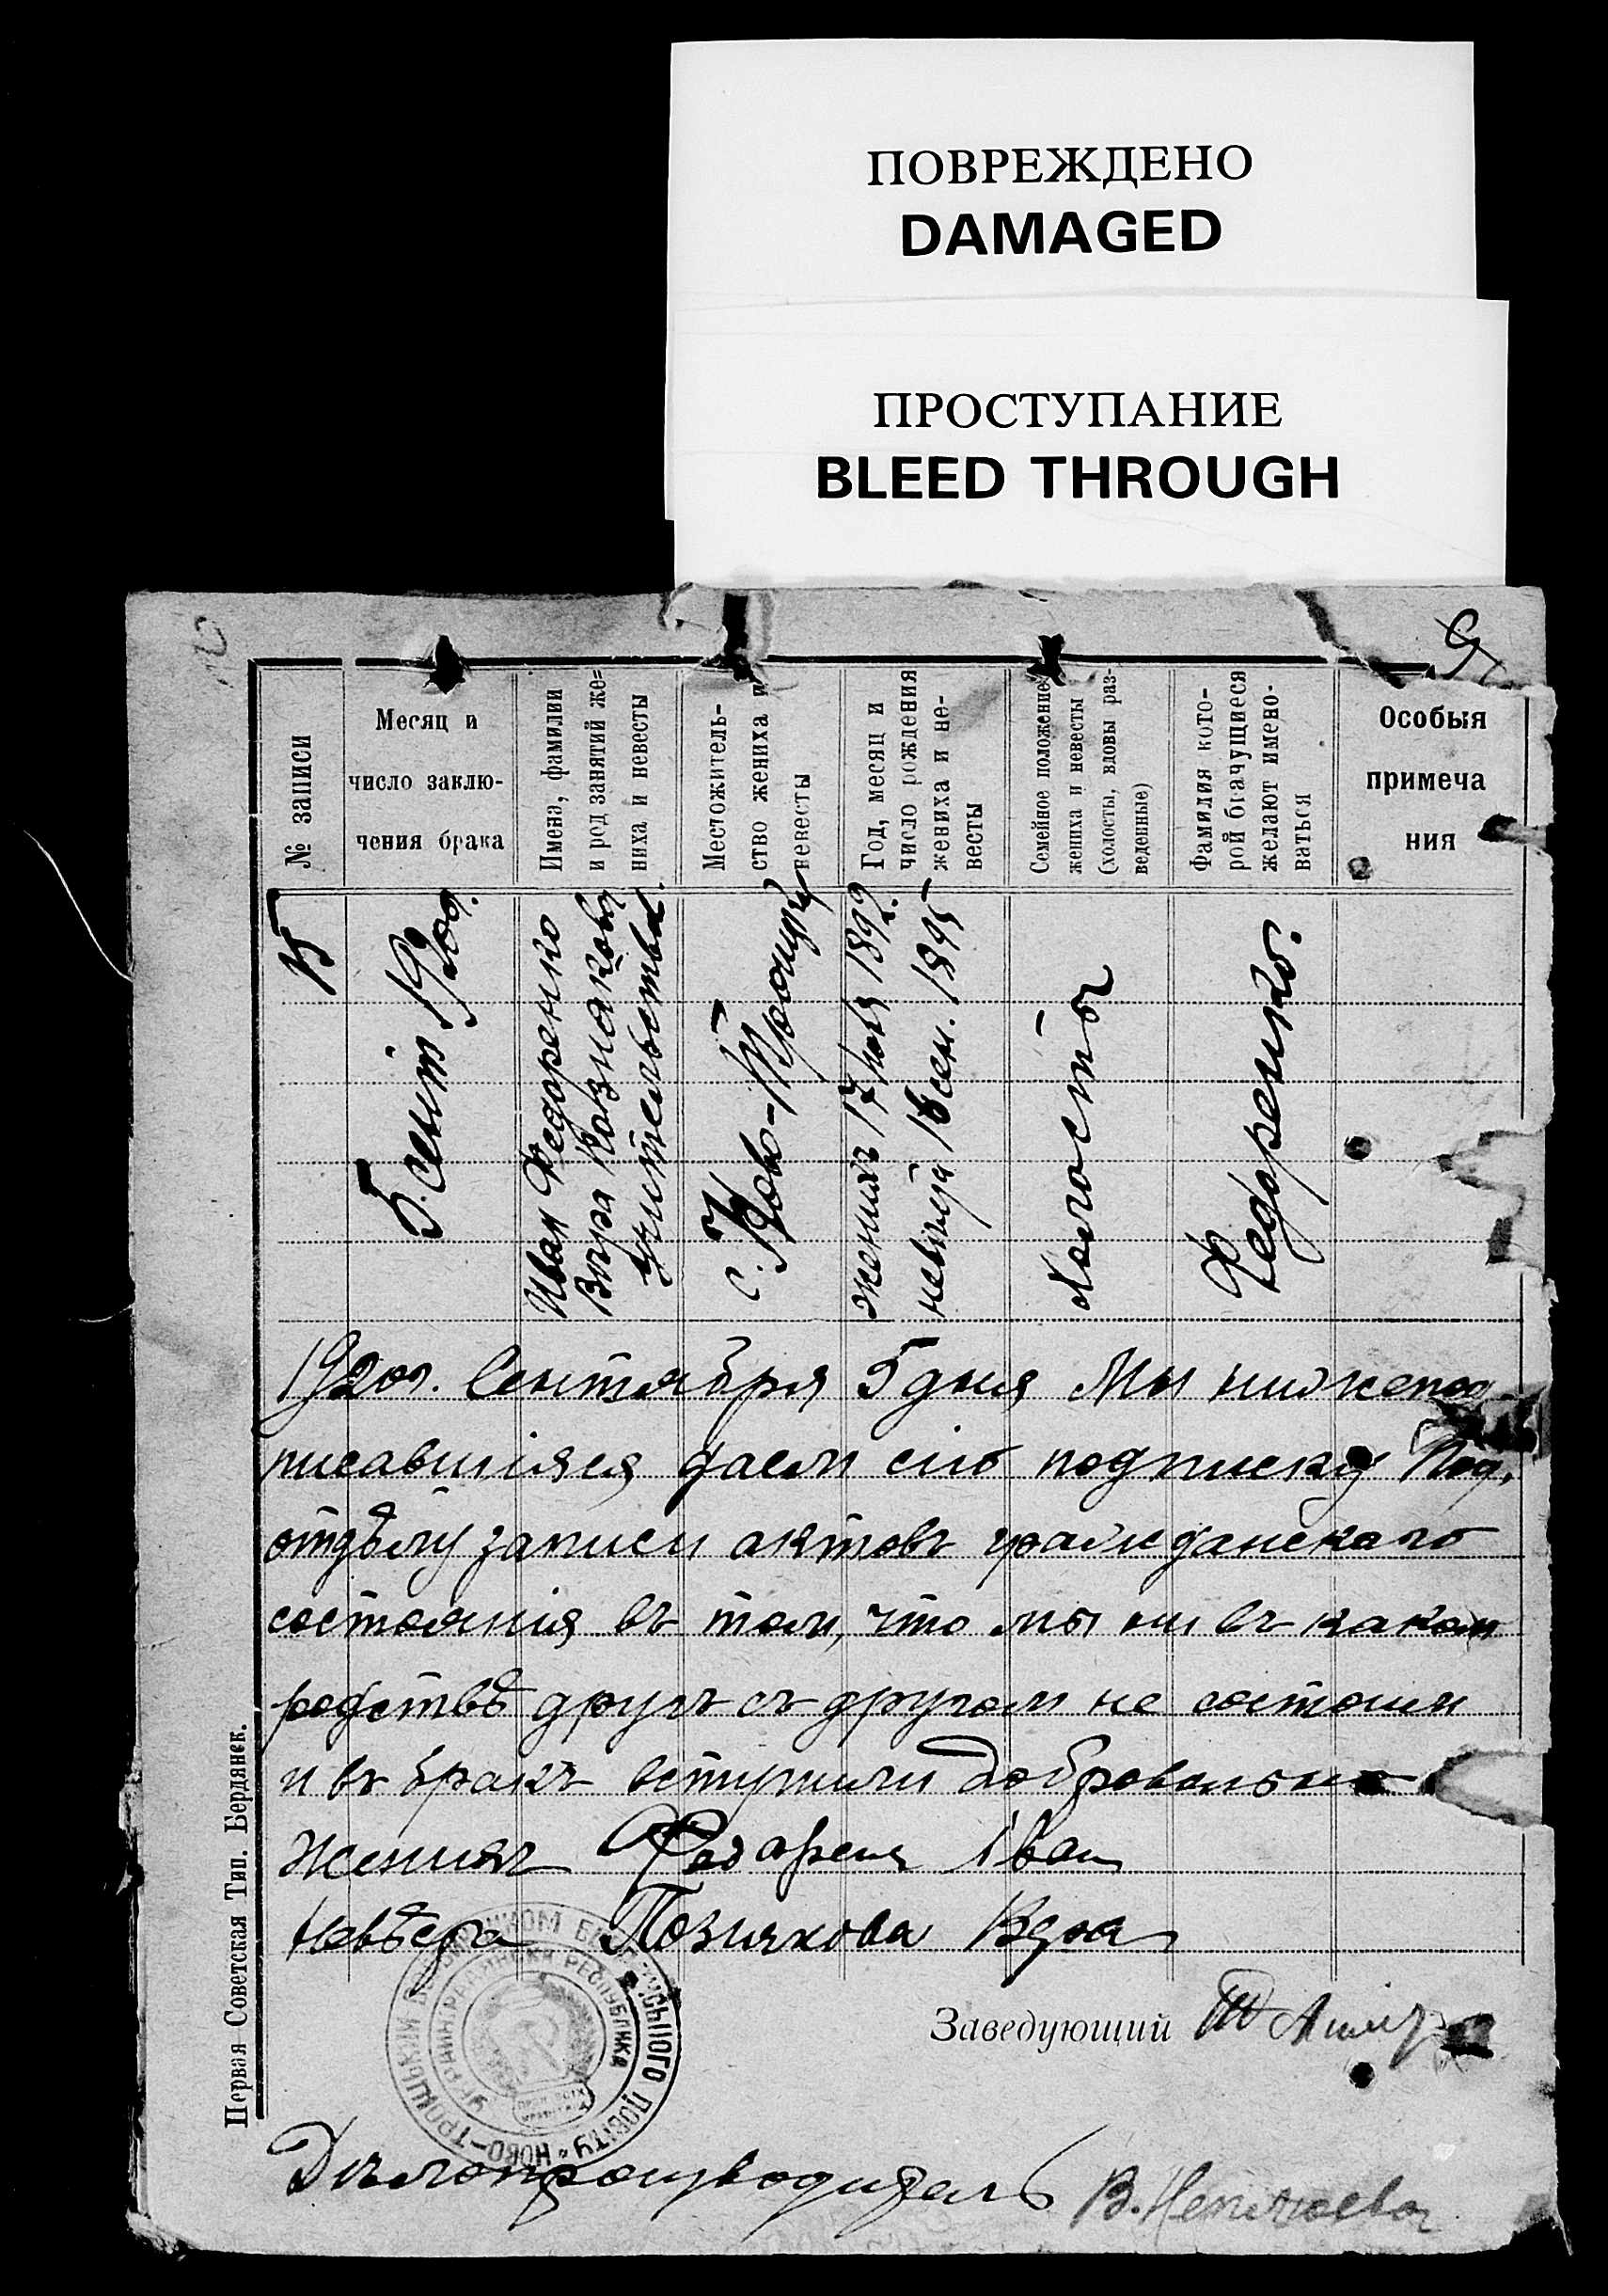 ПОВРЕЖДЕНО
DAMAGED
ПРОСТУПАНИЕ
BLEED THROUGH
9
№ записи
Месяц и
число заклю-
чения брака
Имена, фамилии
и род занятий же-
ниха и невесты
Местожитель-
ство жениха и
невесты
Год, месяц и
число рождения
жениха и не-
весты
Семейное положение
жениха и невесты
(холосты, вдовы раз-
веденные)
Фамилия кото-
рой брачущиеся
желают имено-
ваться
Особыя
примеча
ния
5. сент 1920г.
Иван Федоренко
Вѣра Познякова
учительства.
с. Ново-Троицк
жених 17 1892.
невѣста сен. 1895
Холосты
Федоренко.
1920г. Сентября 5 дня Мы нижепод
писавшіяся даем сію подписку Под.
отдѣлу записи актовъ гражданскаго
состоянія въ том, что мы ни въ каком
родствѣ другъ съ другом не состоим
и въ бракъ вступили добровольно
Жених Федарени Іван
Невѣста Познякова Вера
Заведующий
Дѣлопроизводитель
Первая Советская Тип. Бердянск.
НОВО-ТРОИЦЬКИЙ ПОВІТУ
РЕСПУБЛИКА